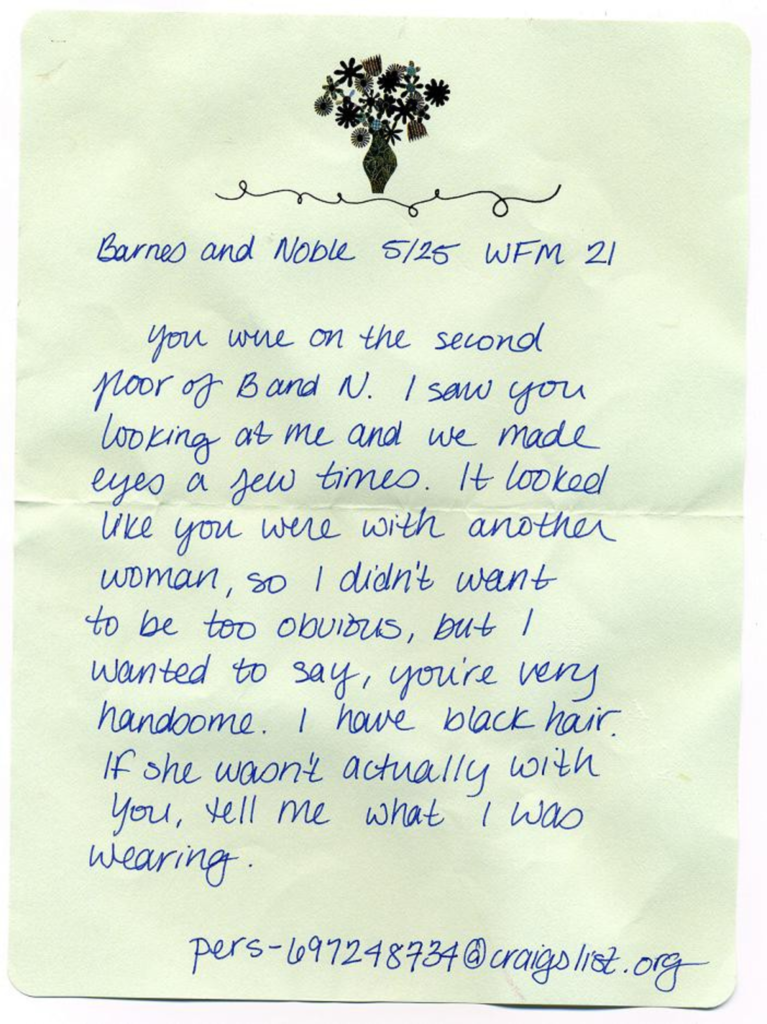 Barnes and Noble 5/25 WFM 21
You were on the second
floor of B and N. I saw you
looking at me and we made
eyes a few times. It looked
like you were with another
woman, so I didn't want
to be too obvious, but I
wanted to say, you're very
handsome. I have black hair.
If she wasn't actually with
you, tell me what I was
wearing.
pers-697248734@craigslist.org